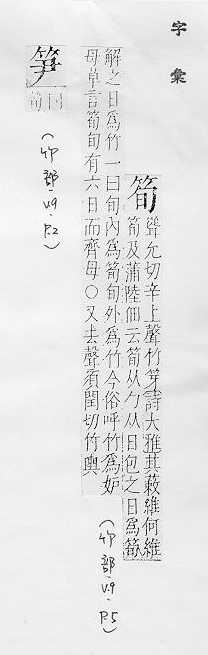 字彙
筍 聳允切辛上聲竹芽詩大雅其蔌維何維
筍及蒲陸佃云筍从勹从日包之日爲筍
解之日爲竹一曰旬內爲筍旬外爲竹今俗呼竹爲妒
母草言筍旬有六日而齊母○又去聲須閏切竹輿
(竹部.V9.P.5)
笋 同
筍
(竹部.V9.P.2)